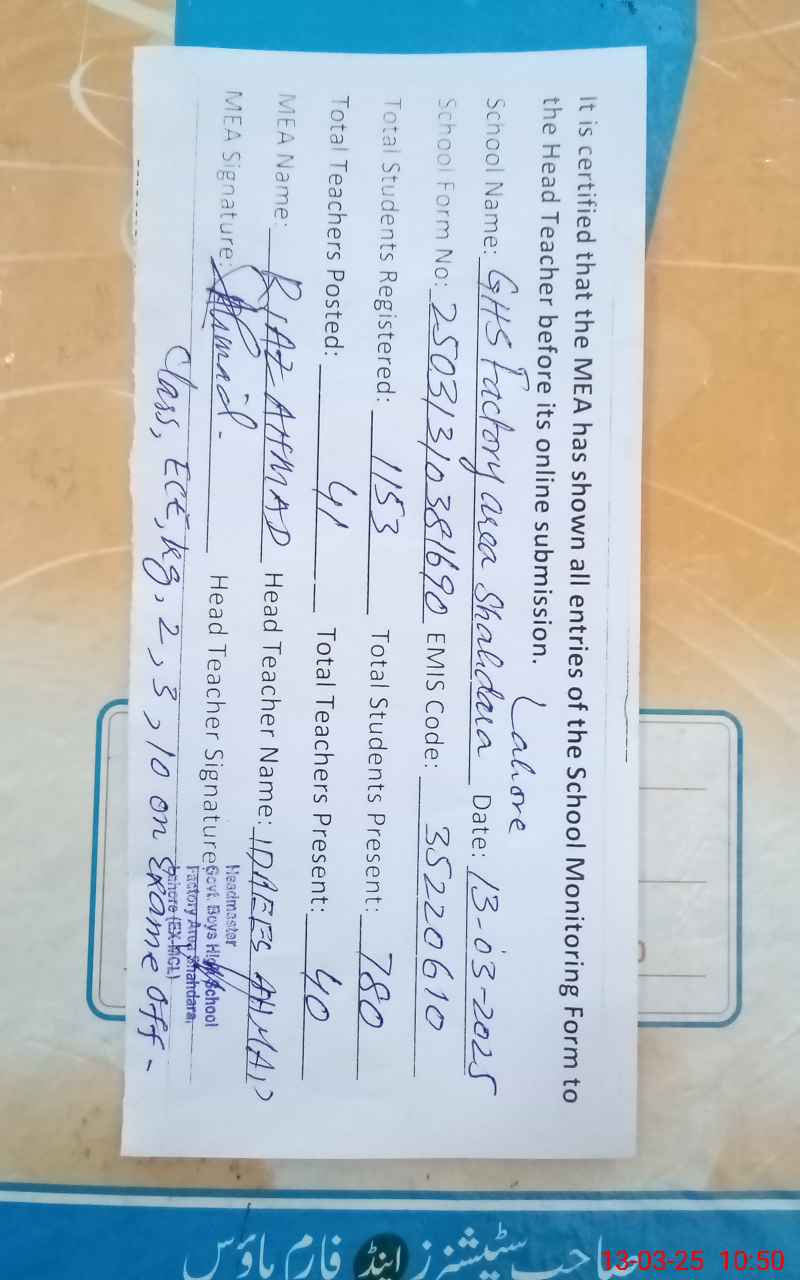 It is certified that the MEA has shown all entries of the School Monitoring Form to
the Head Teacher before its online submission.
Lahore
School Name: GHS Factory area Shahdara Date: 13-03-2025
School Form No: 25031310381690 EMIS Code: 35220610
Total Students Registered: 1153 Total Students Present: 780
Total Teachers Posted: 41 Total Teachers Present: 40
MEA Name: RIAZ AHMAD Head Teacher Name: IDREES AHMAD
MEA Signature: Ahmad. Head Teacher Signature:
Headmaster
Govt. Boys High School
Factory Area Shahdara,
Lahore (EX-MCL)
Class, ECE, kg, 2, 3, 10 on Exame off -
سٹیشنرز اینڈ فارم ہاؤس
13-03-25 10:50